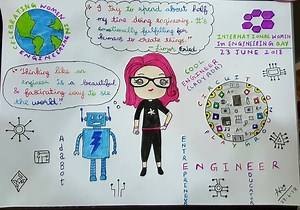 CELEBRATING WOMEN IN ENGINEERING
"I try to spend about half
my time doing engineering. It's
emotionally fulfilling for
humans to create things."
- Limor Fried
INTERNATIONAL WOMEN
IN ENGINEERING DAY
23 JUNE 2018
"Thinking like an
engineer is a beautiful
& fascinating way to see
the world"
COOL
ENGINEER
LADYADA
CIRCUIT
PLAYGROUND
AdaBot
ENTREPRENEUR
ENGINEER
EDUCATOR